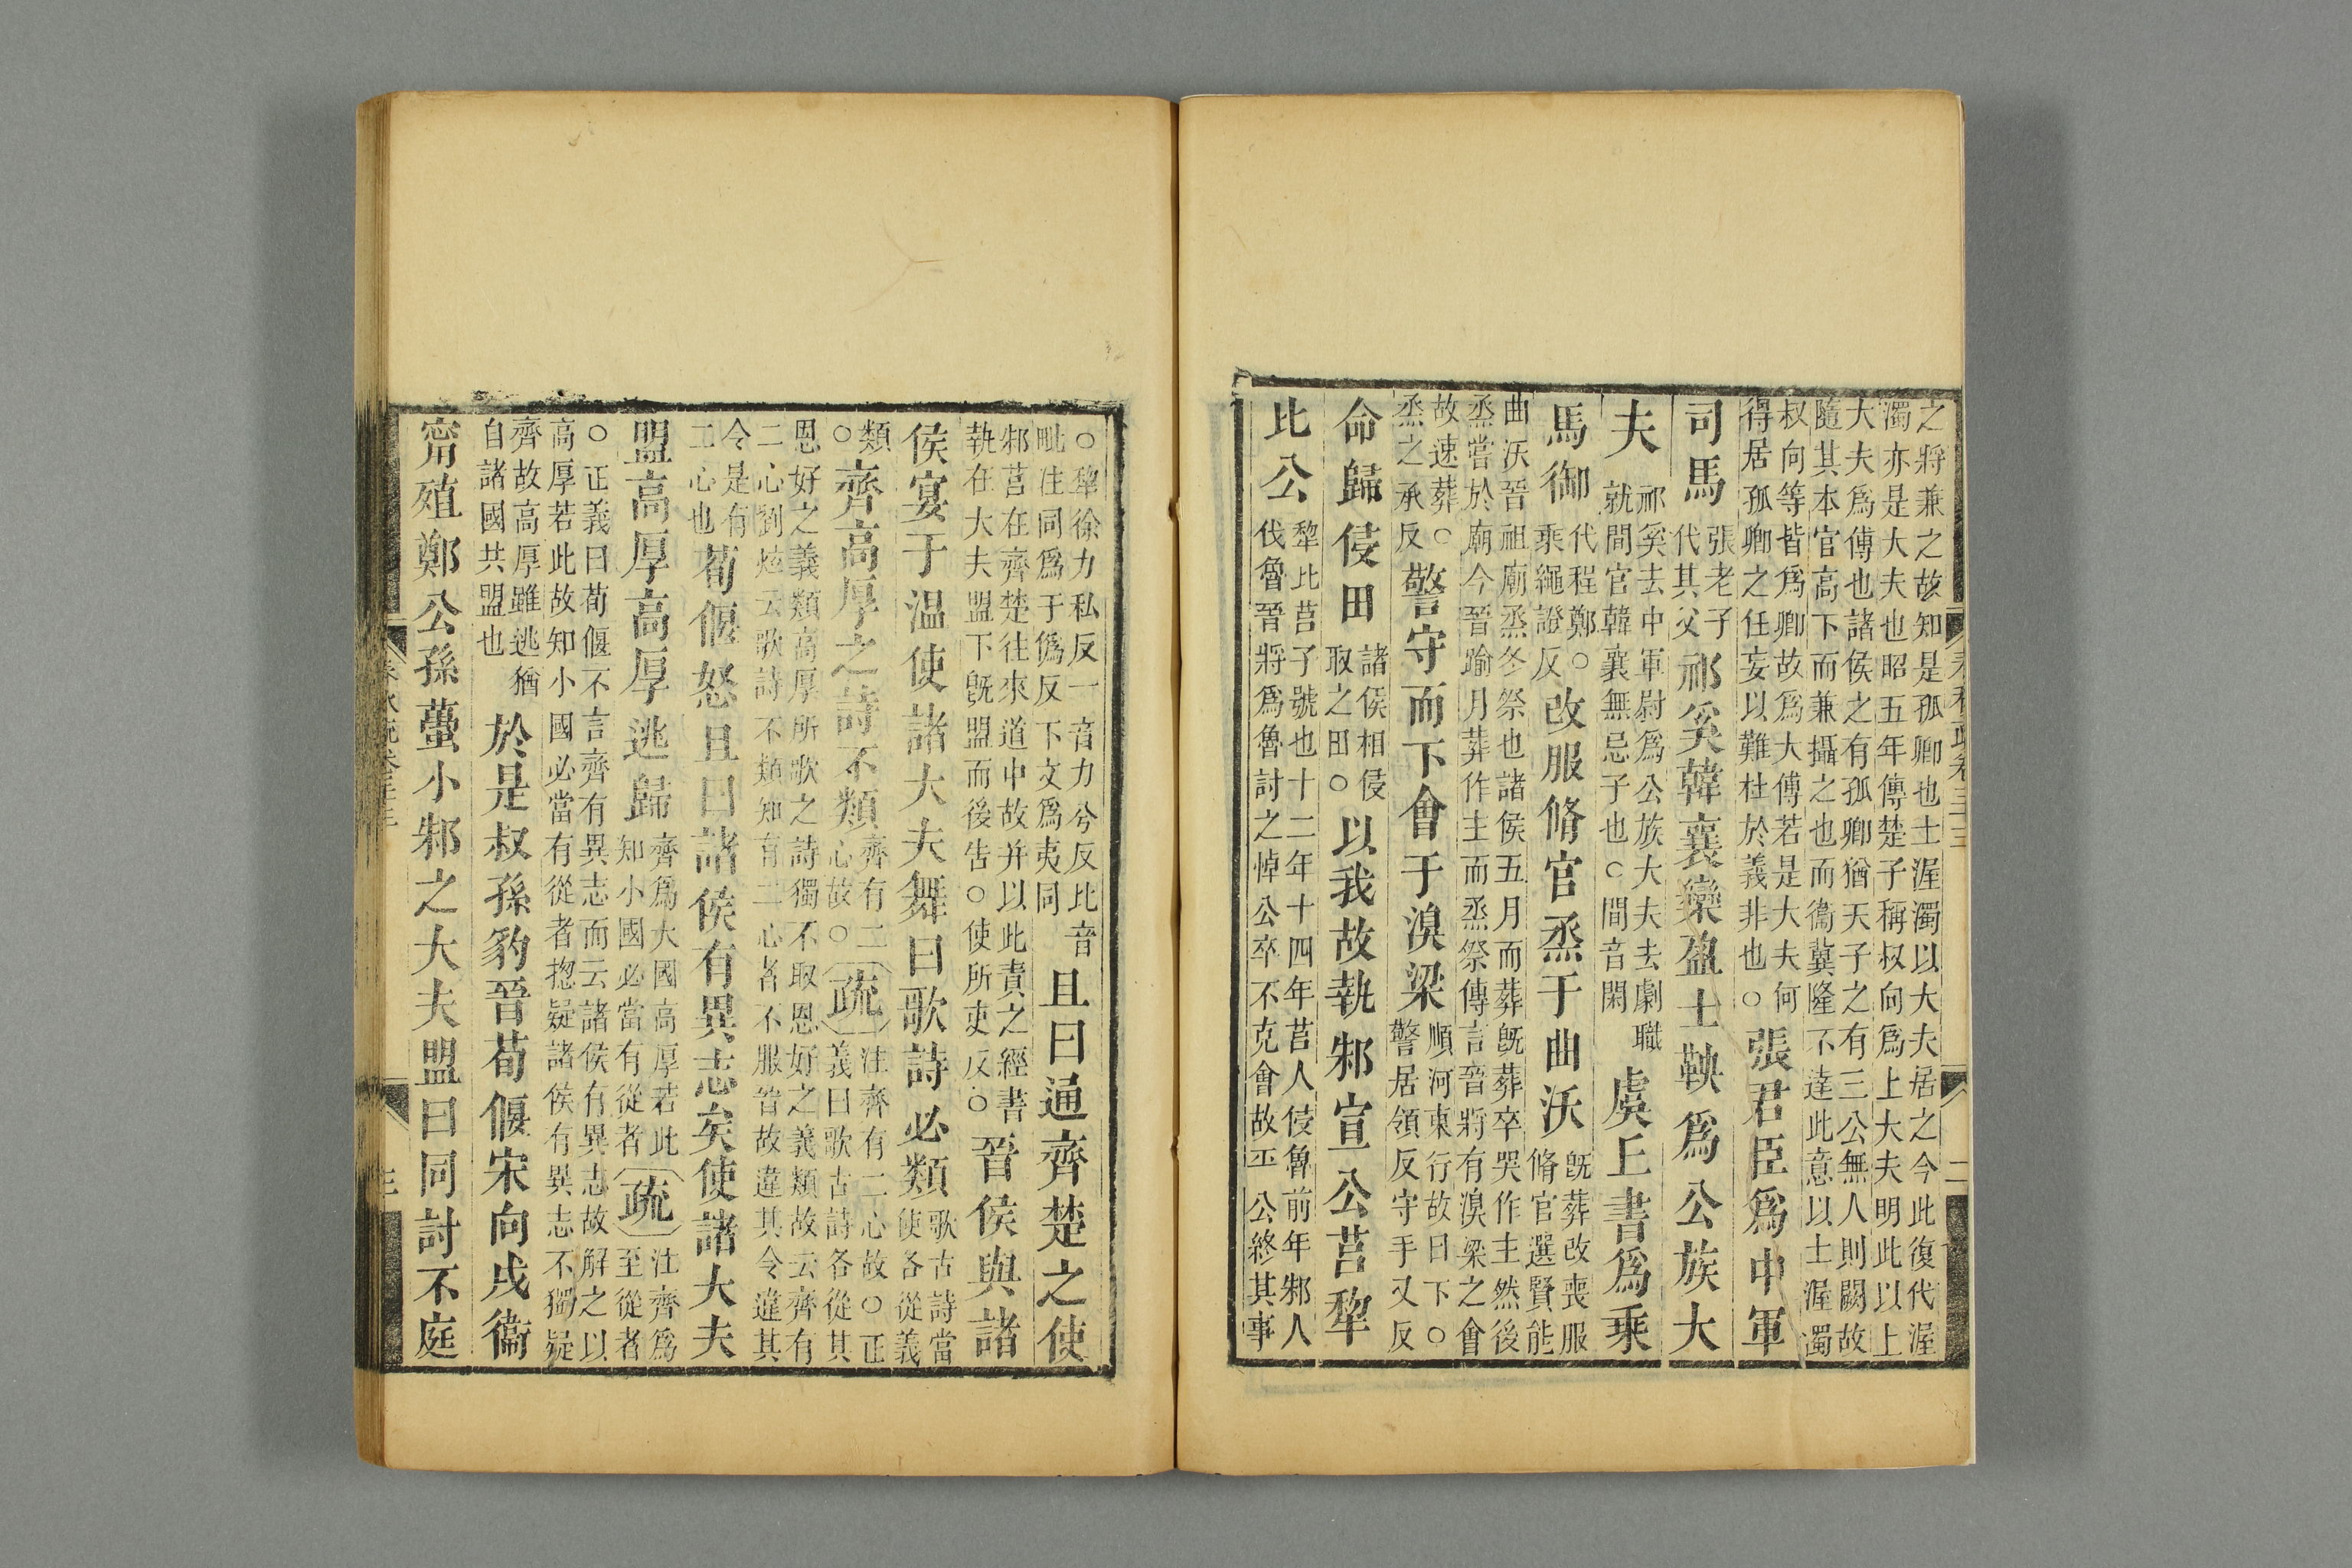 之將兼之故知是孤卿也士渥濁以大夫居之今此復代渥
濁亦是大夫也昭五年傳楚子稱叔向爲上大夫明此以上
大夫爲傅也諸侯之有孤卿猶天子之有三公無人則闕故
隨其本官高下而兼攝之也而衞冀隆不達此意以士渥濁
叔向等皆爲卿故爲大傅若是大夫何
得居孤卿之任妄以難杜於義非也○
張君臣爲中軍
司馬
張老子
代其父
祁奚韓襄欒盈士鞅爲公族大
夫
祁奚去中軍尉爲公族大夫去劇職
就閒官韓襄無忌子也○閒音閑
虞丘書爲乘
馬御
代程鄭○
乘繩證反
改服脩官烝于曲沃
旣葬改喪服
脩官選賢能
曲沃晉祖廟烝冬祭也諸侯五月而葬旣葬卒哭作主然後
烝嘗於廟今晉踰月葬作主而烝祭傳言晉將有溴梁之會
故速葬○
烝之承反
警守而下會于溴梁
順河東行故曰下○
警居領反守手又反
命歸侵田
諸侯相侵
取之田○
以我故執邾宣公莒犂
比公
犂比莒子號也十二年十四年莒人侵魯前年邾人
伐魯晉將爲魯討之悼公卒不克會故平公終其事
○犂徐力私反一音力兮反比音
毗注同爲于僞反下文爲夷同
且曰通齊楚之使
邾莒在齊楚往來道中故并以此責之經書
執在大夫盟下旣盟而後告○使所吏反○
晉侯與諸
侯宴于温使諸大夫舞曰歌詩必類
歌古詩當
使各從義
類
○
齊高厚之詩不類
齊有二
心故○
疏
注齊有二心故○正
義曰歌古詩各從其
恩好之義類高厚所歌之詩獨不取恩好之義類故云齊有
二心劉炫云歌詩不類知有二心者不服晉故違其令違其
令是有
二心也
荀偃怒且曰諸侯有異志矣使諸大夫
盟高厚高厚逃歸
齊爲大國高厚若此
知小國必當有從者
疏
注齊爲
至從者
○正義曰荀偃不言齊有異志而云諸侯有異志故解之以
高厚若此故知小國必當有從者揔疑諸侯有異志不獨疑
齊故高厚雖逃猶
自諸國共盟也
於是叔孫豹晉荀偃宋向戌衞
甯殖鄭公孫蠆小邾之大夫盟曰同討不庭